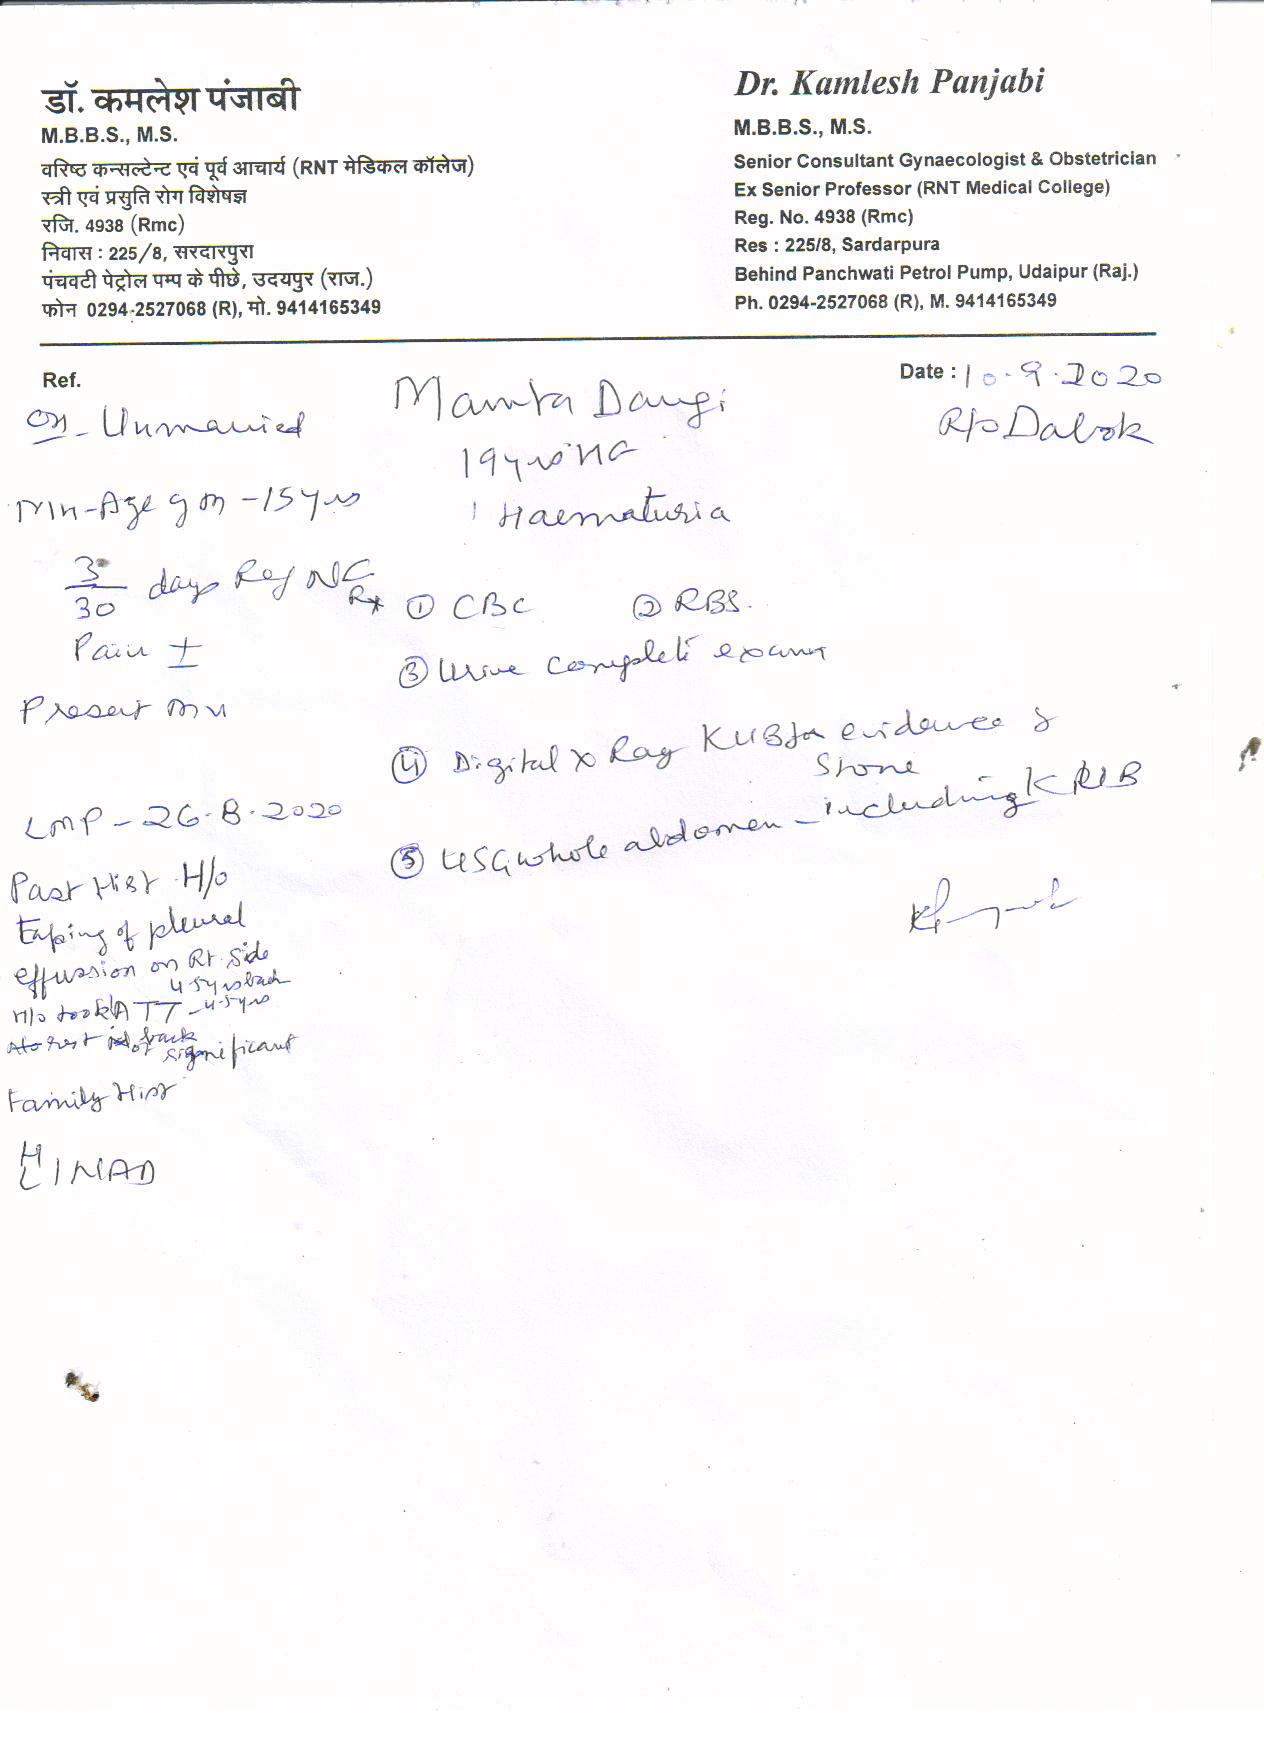 डॉ. कमलेश पंजाबी
M.B.B.S., M.S.
वरिष्ठ कन्सल्टेन्ट एवं पूर्व आचार्य (RNT मेडिकल कॉलेज)
स्त्री एवं प्रसुति रोग विशेषज्ञ
रजि. 4938 (Rmc)
निवास : 225/8, सरदारपुरा
पंचवटी पेट्रोल पम्प के पीछे, उदयपुर (राज.)
फोन 0294-2527068 (R), मो. 9414165349
Dr. Kamlesh Panjabi
M.B.B.S., M.S.
Senior Consultant Gynaecologist & Obstetrician
Ex Senior Professor (RNT Medical College)
Reg. No. 4938 (Rmc)
Res : 225/8, Sardarpura
Behind Panchwati Petrol Pump, Udaipur (Raj.)
Ph. 0294-2527068 (R), M. 9414165349
Ref.
Date : 10.9.2020
Mamta Dangi
R/o Dabok
19yrs
Haematuria
Unmarried
Age 15yrs
3/30 days Reg
Pain ±
Present
LMP - 26.8.2020
Past Hist H/o
taping of pleural
effussion on Rt. Side
4-5yrs back
H/o took ATT - 4-5yrs
back
significant
Family Hist
NAD
Rx
① CBC ② RBS.
③ Urine complete exam
④ Digital X Ray KUB for evidence of
Stone
⑤ USG whole abdomen - including KUB